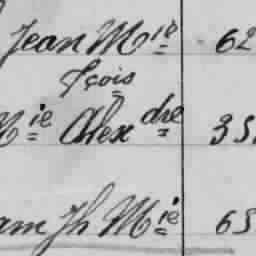 Jean Mie 62
fçois
Mie Alexdre 35
am Jh Mie 65